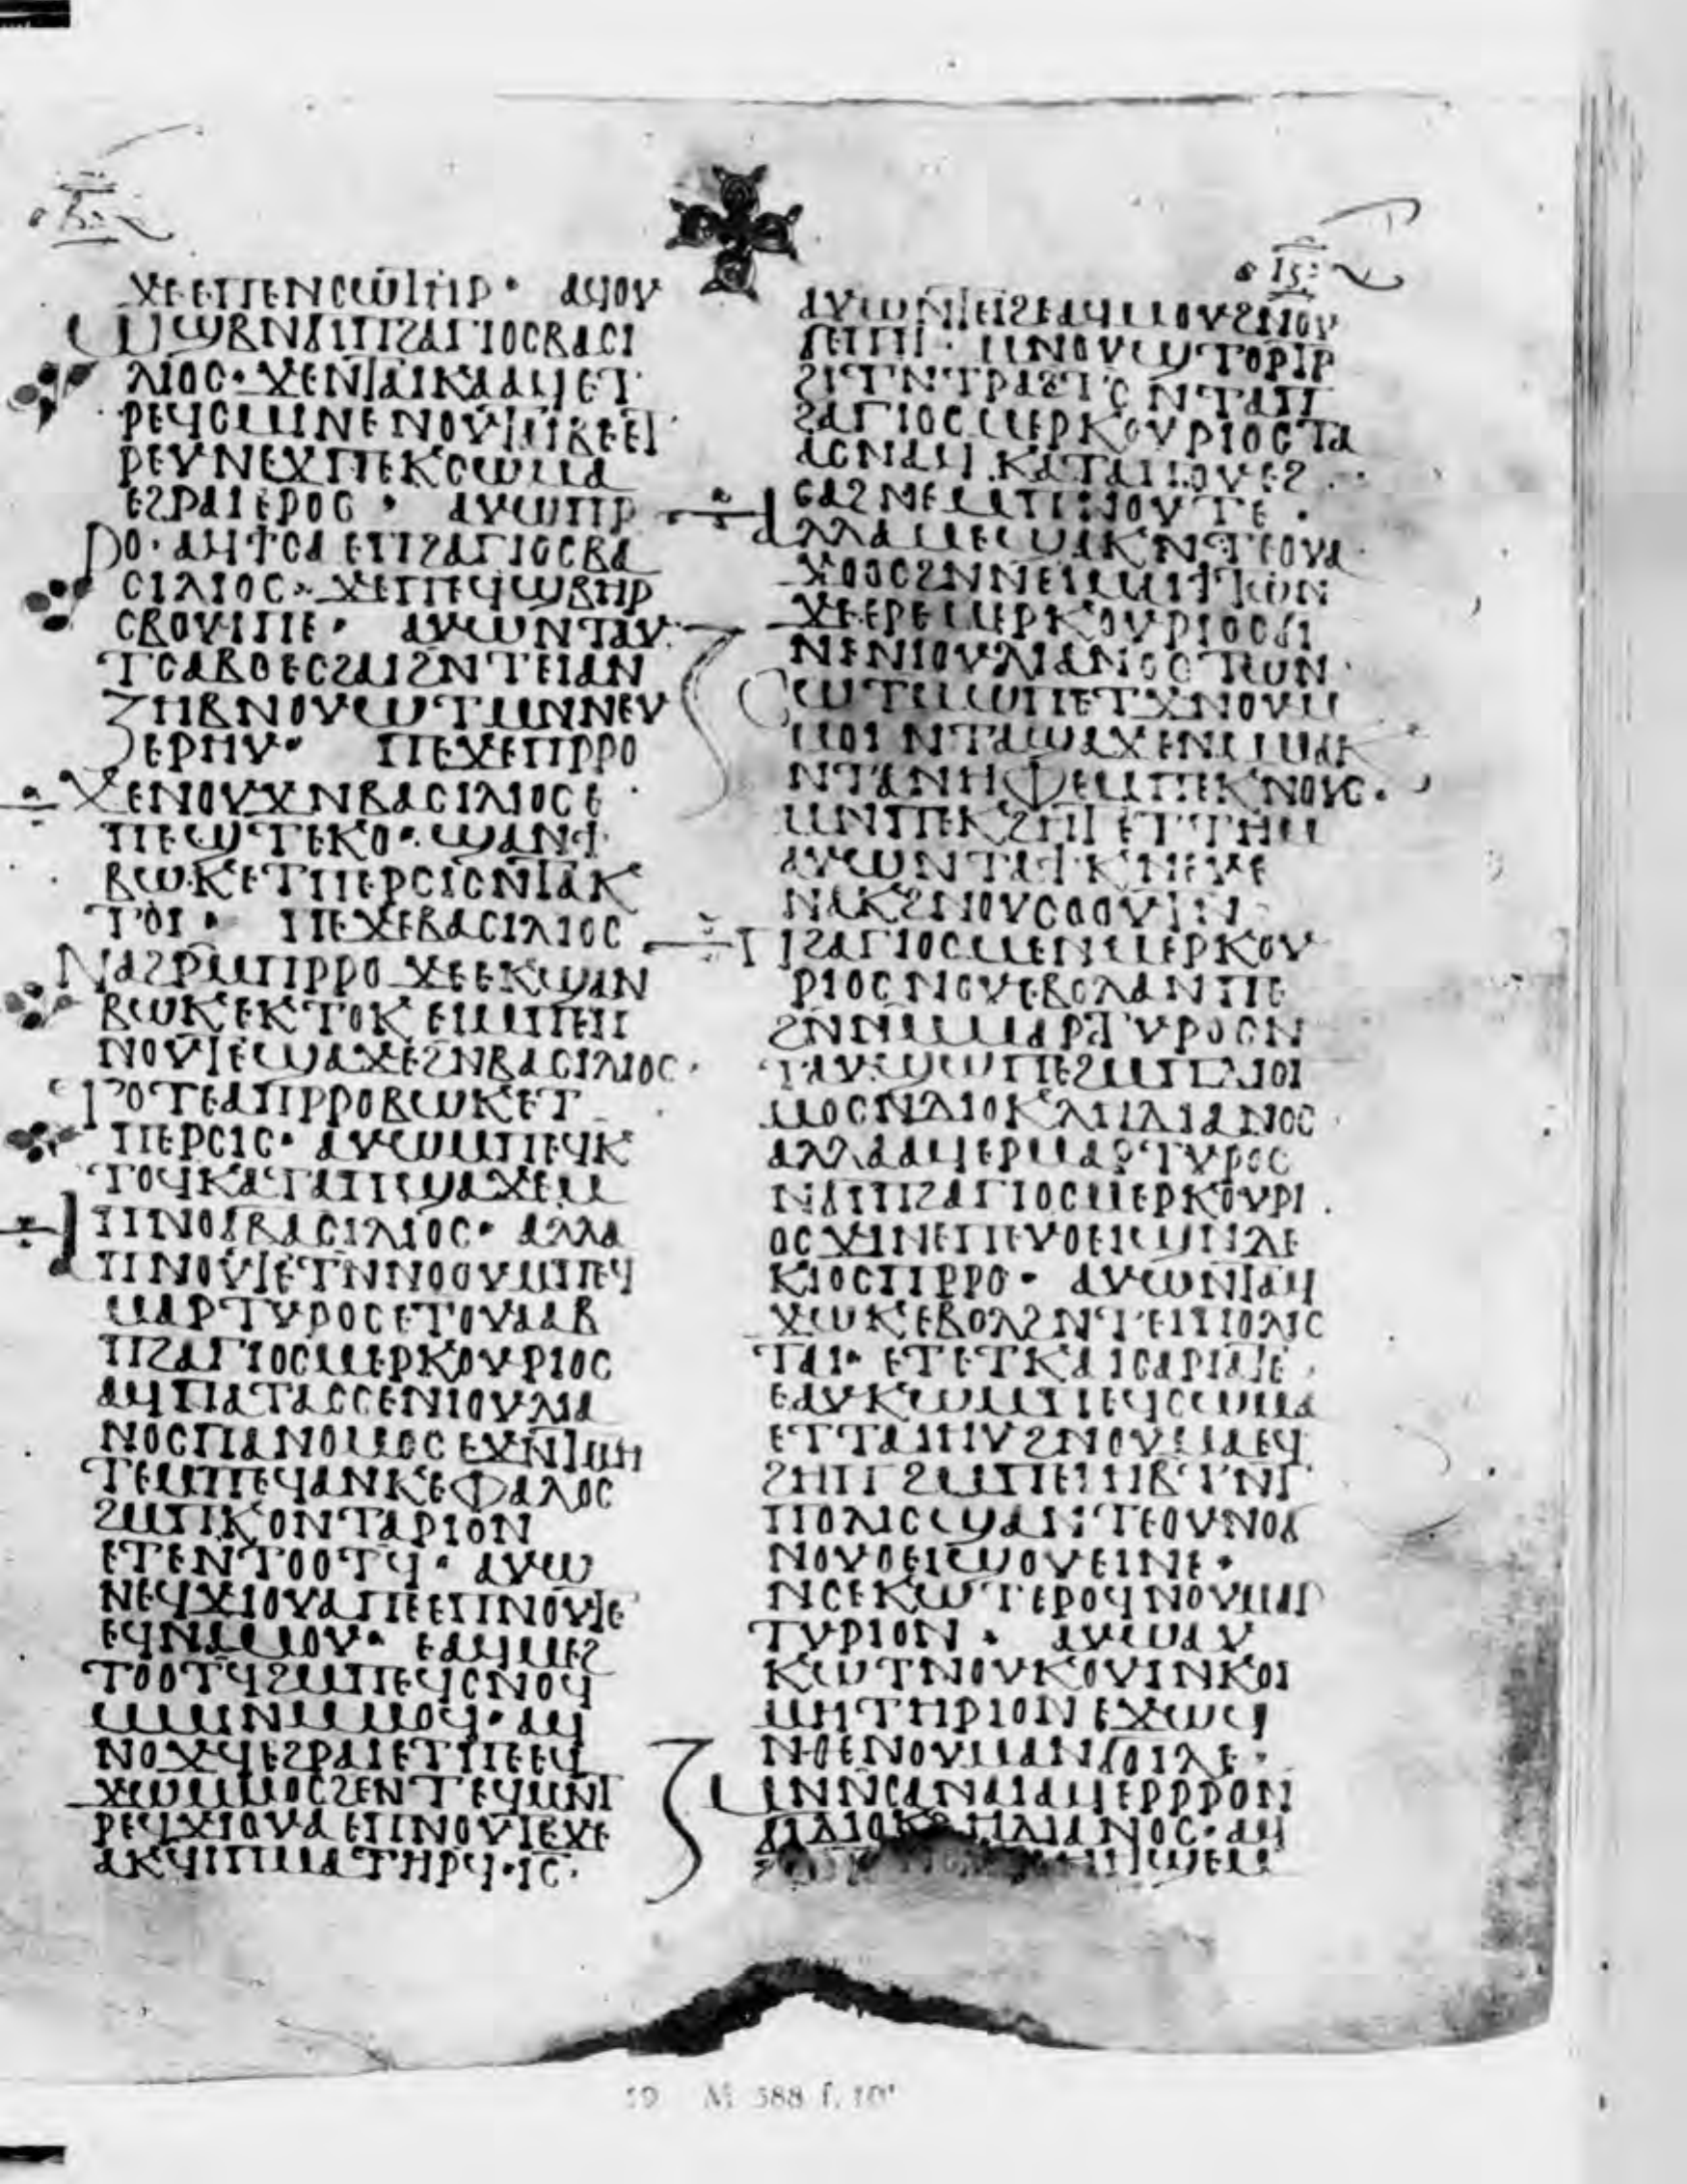 ϪⲈⲈⲠⲈⲚⲤⲰⲦⲎⲢ· ⲀϤⲞⲨ
ⲰϢⲂⲚϬⲒⲠϨⲀⲄⲒⲞⲤⲂⲀⲤⲒ
ⲖⲒⲞⲤ· ϪⲈⲚⲦⲀⲒⲔⲀⲀϤ ⲈⲦ
ⲢⲈϤⲤⲘⲒⲚⲈ
ⲢⲈⲨⲚⲈϪⲠⲈⲔⲤⲰⲘⲀ
ⲈϨⲢⲀⲒ ⲈⲢⲞⲤ· ⲀⲨⲰ ⲠⲢ
ⲢⲞ· ⲀϤϮⲤⲀ ⲈⲠϨⲀⲄⲒⲞⲤ ⲂⲀ
ⲤⲒⲖⲒⲞⲤ· ϪⲈⲠⲈϤϢⲂⲎⲢ
ⲤⲂⲞⲨⲒⲠⲈ· ⲀⲨⲰ ⲚⲦⲀⲨ
ⲦⲤⲀⲂⲞ ⲈⲤϨⲀⲒ ϨⲚ ⲦⲈⲒⲀⲚ
ⲌⲎⲂ ⲚⲞⲨⲰⲦ ⲘⲚ ⲚⲈⲨ
ⲈⲢⲎⲨ· ⲠⲈϪⲈ ⲠⲢⲢⲞ
ϪⲈ ⲚⲞⲨϪ ⲚⲂⲀⲤⲒⲖⲒⲞⲤ Ⲉ
ⲠⲈϢⲦⲈⲔⲞ· ϢⲀⲚϮ
ⲂⲰⲔ ⲈⲦⲠⲈⲢⲤⲒⲤ ⲚⲦⲀⲔ
ⲦⲞⲒ· ⲠⲈϪⲈ ⲂⲀⲤⲒⲖⲒⲞⲤ
ⲚⲀϨⲢⲘ ⲠⲢⲢⲞ ϪⲈ ⲈⲔϢⲀⲚ
ⲂⲰⲔ ⲈⲔⲦⲞⲔ ⲈⲒⲘⲠⲈⲠ
ⲚⲞⲨⲦⲈ ϢⲀϪⲈ ϨⲚ ⲂⲀⲤⲒⲖⲒⲞⲤ·
ⲦⲞⲦⲈ ⲀⲠⲢⲢⲞ ⲂⲰⲔ ⲈⲦ
ⲠⲈⲢⲤⲒⲤ· ⲀⲨⲰ ⲘⲠⲈϤⲔ
ⲦⲞϤ ⲔⲀⲦⲀ ⲠϢⲀϪⲈ Ⲙ
ⲠⲚⲞϬ ⲂⲀⲤⲒⲖⲒⲞⲤ· ⲀⲖⲖⲀ
ⲠⲚⲞⲨⲦⲈ ⲦⲚⲚⲞⲞⲨ ⲘⲠⲈϤ
ⲘⲀⲢⲦⲨⲢⲞⲤ ⲈⲦⲞⲨⲀⲀⲂ
ⲠϨⲀⲄⲒⲞⲤ ⲘⲈⲢⲔⲞⲨⲢⲒⲞⲤ
ⲀϤⲠⲀⲦⲀⲤⲤⲈ ⲚⲒⲞⲨⲖⲒⲀ
ⲚⲞⲤ ⲠⲀⲚⲞⲘⲞⲤ ⲈϪⲚ ⲦⲘⲎ
ⲦⲈ ⲘⲠⲈϤⲀⲚⲔⲈⲪⲀⲖⲞⲤ
ϨⲘ ⲠⲔⲞⲚⲦⲀⲢⲒⲞⲚ
ⲈⲦⲈⲚⲦⲞⲞⲦϤ· ⲀⲨⲰ
ⲚⲈϤϪⲒⲞⲨⲀ ⲠⲈ ⲈⲠⲚⲞⲨⲦⲈ
ⲈϤⲚⲀⲘⲞⲨ· ⲈⲀϤⲘⲈϨ
ⲦⲞⲞⲦϤ ϨⲘ ⲠⲈϤⲤⲚⲞϤ
ⲘⲘⲒⲚ ⲘⲘⲞϤ· ⲀϤ
ⲚⲞϪϤ ⲈϨⲢⲀⲒ ⲈⲦⲠⲈ ⲈϤ
ϪⲰ ⲘⲘⲞⲤ ϨⲈⲚ ⲦⲈϤⲘⲚⲦ
ⲢⲈϤϪⲒⲞⲨⲀ ⲈⲠⲚⲞⲨⲦⲈ ϪⲈ
ⲀⲔϤⲒ ⲠⲘⲀ ⲦⲎⲢϤ· ⲒⲤ·
ⲀⲨⲰ ⲚⲦⲈⲒϨⲈ ⲀϤⲘⲞⲨ ϨⲚ ⲞⲨ
ϬⲈⲠⲎ· ⲘⲚ ⲞⲨϢⲦⲞⲢⲦⲢ
ϨⲒⲦⲚ ⲦⲢⲀϨⲦⲤ ⲚⲦⲀⲠ
ϨⲀⲄⲒⲞⲤ ⲘⲈⲢⲔⲞⲨⲢⲒⲞⲤ ⲦⲀ
ⲀⲤ ⲚⲀϤ ⲔⲀⲦⲀ ⲠⲞⲨⲈϨ
ⲤⲀϨⲚⲈ ⲘⲠⲚⲞⲨⲦⲈ·
ⲀⲖⲖⲀ ⲘⲈϢⲀⲔ ⲚⲦⲈ ⲞⲨⲀ
ϪⲞⲞⲤ ϨⲚ ⲚⲈⲒⲘⲎϮⲔⲰⲚ
ϪⲈ ⲈⲢⲈ ⲘⲈⲢⲔⲞⲨⲢⲒⲞⲤ
ⲚⲒⲞⲨⲖⲒⲀⲚⲞⲤ ⲦⲰⲚ
ⲤⲰⲦⲘ Ⲱ ⲠⲈⲦϪⲚⲞⲨ Ⲙ
ⲘⲞⲒ ⲚⲦⲀϢⲀϪⲈ ⲚⲘⲘⲀⲔ
ⲚⲦⲀⲚⲎⲪⲈ ⲘⲠⲈⲔⲚⲞⲨⲤ·
ⲘⲚ ⲠⲈⲔϨⲎⲦ ⲈⲦⲦⲎⲘ
ⲀⲨⲰ ⲚⲦⲀϮ
ⲚⲀⲔ ϨⲚ ⲞⲨⲤⲞⲞⲨⲦⲚ
ⲠϨⲀⲄⲒⲞⲤ ⲘⲈⲚ ⲘⲈⲢⲔⲞⲨ
ⲢⲒⲞⲤ ⲚⲞⲨⲈⲂⲞⲖ ⲀⲚ ⲠⲈ
ϨⲚ ⲘⲘⲀⲢⲦⲨⲢⲞⲤ Ⲛ
ⲦⲀⲨϢⲰⲠⲈ ϨⲘ ⲠⲆⲒⲞⲄ
ⲘⲞⲤ ⲚⲆⲒⲞⲔⲖⲎⲆⲒⲀⲚⲞⲤ
ⲀⲖⲖⲀ ⲀϤⲈⲢⲘⲀⲢⲦⲨⲢⲞⲤ
ⲚϬⲒ ⲠϨⲀⲄⲒⲞⲤ ⲘⲈⲢⲔⲞⲨⲢⲒ
ⲞⲤ ϪⲒⲚ ⲈⲠⲈⲨⲞⲈⲒϢ ⲚⲆⲈ
ⲔⲒⲞⲤ ⲠⲢⲢⲞ· ⲀⲨⲰ ⲚⲦⲀϤ
ϪⲰⲔ ⲈⲂⲞⲖ ϨⲚ ⲦⲈⲒⲠⲞⲖⲒⲤ
ⲦⲀⲒ· ⲈⲦⲈ ⲦⲔⲀⲒⲤⲀⲢⲒⲀ ⲦⲈ
ⲈⲀⲨⲔⲰ ⲘⲠⲈϤⲤⲰⲘⲀ
ⲈⲦⲦⲀⲒⲎⲨ ϨⲚ ⲞⲨⲘⲀ ⲈϤ
ϨⲎⲠ ϨⲘ ⲠⲈⲒⲎⲂⲦ ⲚⲦ
ⲠⲞⲖⲒⲤ ϢⲀⲚⲦⲈ ⲞⲨⲚⲞϬ
ⲚⲞⲨⲞⲈⲒϢ ⲞⲨⲈⲒⲚⲈ·
ⲚⲤⲈⲔⲰⲦ ⲈⲢⲞϤ ⲚⲞⲨⲘⲀⲢ
ⲦⲨⲢⲒⲞⲚ· ⲀⲨⲰ ⲀⲨ
ⲔⲰⲦ ⲚⲞⲨⲔⲞⲨⲒ ⲚⲔⲞⲒ
ⲘⲎⲦⲎⲢⲒⲞⲚ ⲈϪⲰϤ
ⲚⲐⲈ ⲚⲞⲨⲘⲀ ⲚϬⲞⲒⲖⲈ·
ⲘⲚⲚⲤⲀ ⲚⲀⲒ ⲀϤⲈⲢⲢⲢⲞ Ⲛ
ϬⲒ ⲆⲒⲞⲔⲖⲎⲆⲒⲀⲚⲞⲤ· ⲀϤ